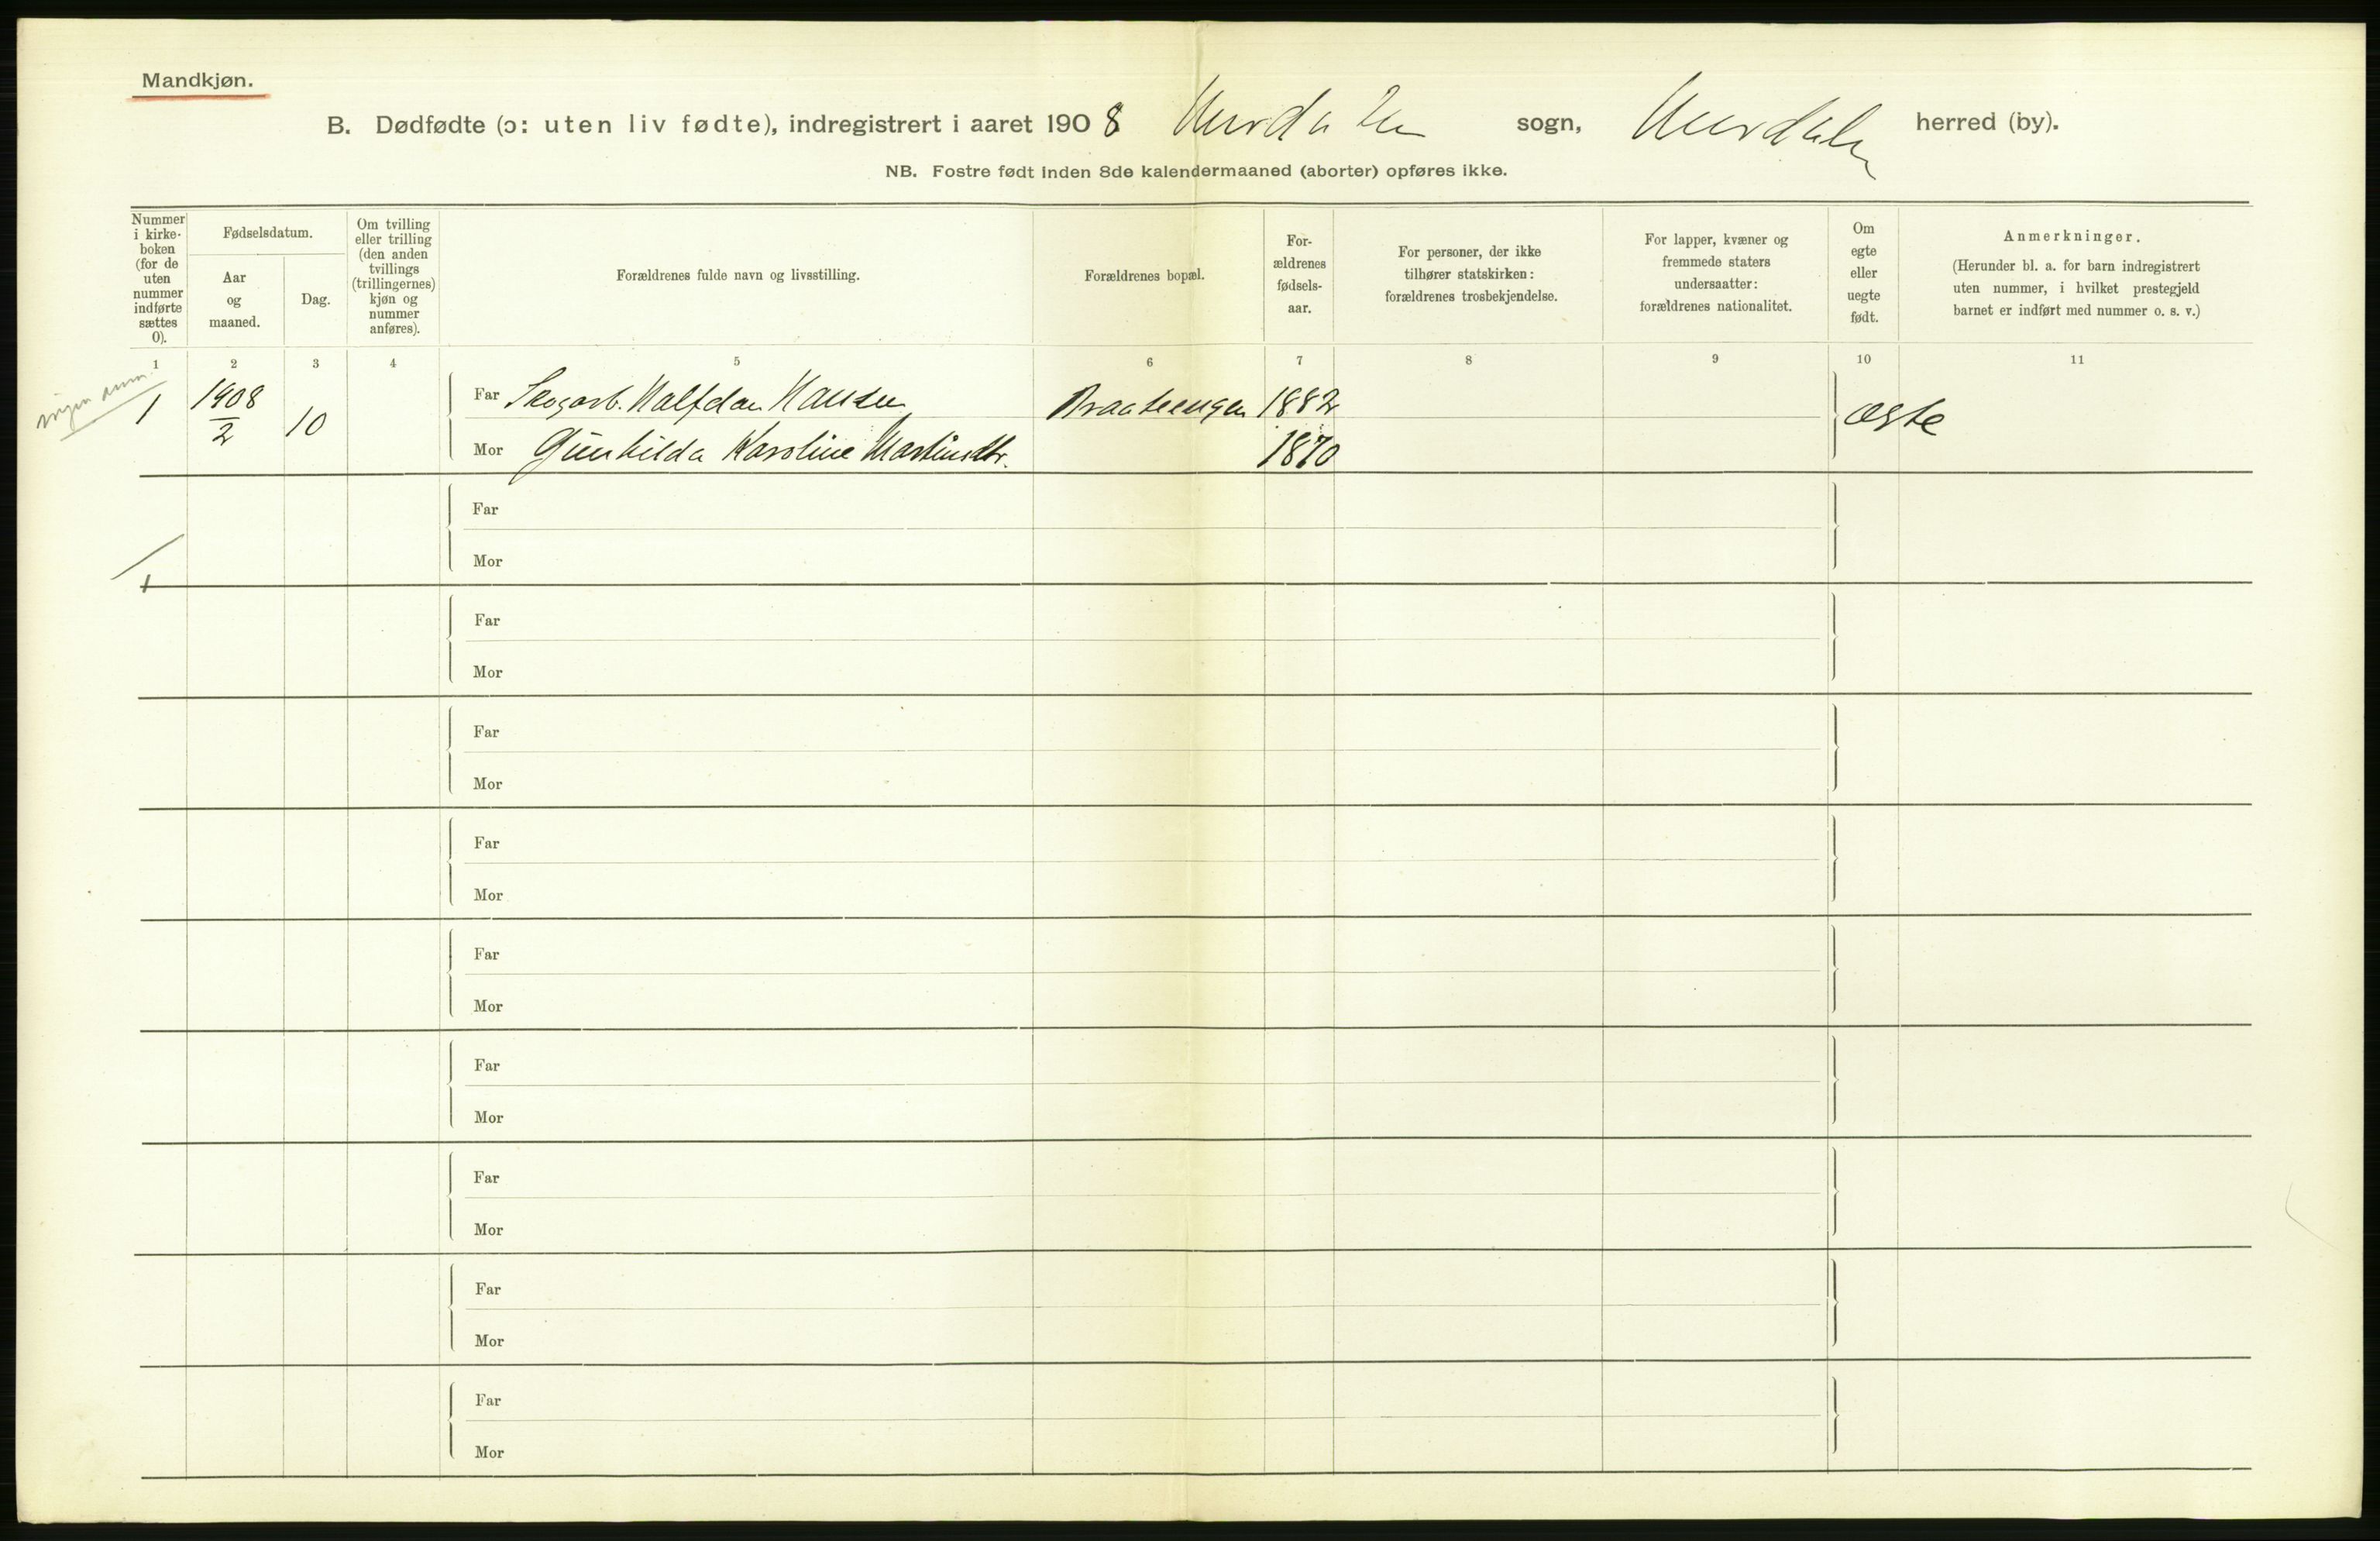 Mandkjøn.
B. Dødfødte (ɔ: uten liv fødte), indregistrert i aaret 1908 Hurdalen sogn, Hurdalen herred (by).
NB. Fostre født inden 8de kalendermaaned (aborter) opføres ikke.
Nummer i kirke-boken (for de uten nummer indførte sættes 0).
Fødselsdatum.
Aar og maaned.
Dag.
Om tvilling eller trilling (den anden tvillings (trillingernes) kjøn og nummer anføres).
Forældrenes fulde navn og livsstilling.
Forældrenes bopæl.
For-ældrenes fødsels-aar.
For personer, der ikke tilhører statskirken: forældrenes trosbekjendelse.
For lapper, kvæner og fremmede staters undersaatter: forældrenes nationalitet.
Om egte eller uegte født.
Anmerkninger.
(Herunder bl. a. for barn indregistrert uten nummer, i hvilket prestegjeld barnet er indført med nummer o. s. v.)
1 2 3 4 5 6 7 8 9 10 11
1 1908/2 10 Far Skogarb. Halfdan Hansen Braateengen 1882 ægte
Mor Gunhilda Karoline Martinsdtr. 1870
Far
Mor
1
Far
Mor
Far
Mor
Far
Mor
Far
Mor
Far
Mor
Far
Mor
Far
Mor
Far
Mor